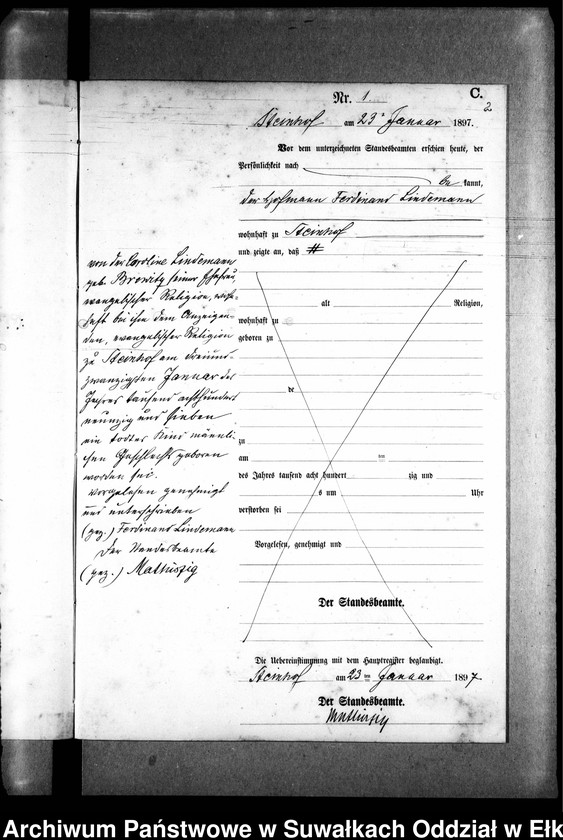 Nr. 1.
C.
2
Steinhof am 23 Januar 1897.
Vor dem unterzeichneten Standesbeamten erschien heute, der
Persönlichkeit nach
be kannt,
der Hofmann Ferdinand Lindemann
wohnhaft zu Steinhof
und zeigte an, daß #
von der Caroline Lindemann
geb. seiner Ehefrau,
evangelischer Religion, wohn-
haft bei ihm dem Anzeigen-
den, evangelischer Religion
zu Steinhof am dreiund
zwanzigsten Januar des
Jahres tausend achthundert
neunzig und sieben
ein todtes Kind männli-
chen Geschlechts geboren
worden sei.
Vorgelesen genehmigt
und unterschrieben
(gez.) Ferdinand Lindemann
Der Standesbeamte
(gez.) Mattuszig
alt Religion,
wohnhaft zu
geboren zu
de
zu
am ten
des Jahres tausend acht hundert zig und
s um Uhr
verstorben sei
Vorgelesen, genehmigt und
Der Standesbeamte.
Die Uebereinstimmung mit dem Hauptregister beglaubigt.
Steinhof am 23 ten Januar 1897
Der Standesbeamte.
Mattuszig
Archiwum Państwowe w Suwałkach Oddział w Ełk